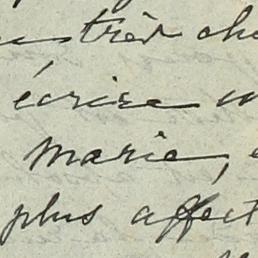 très ch
écrire
marie,
plus affect